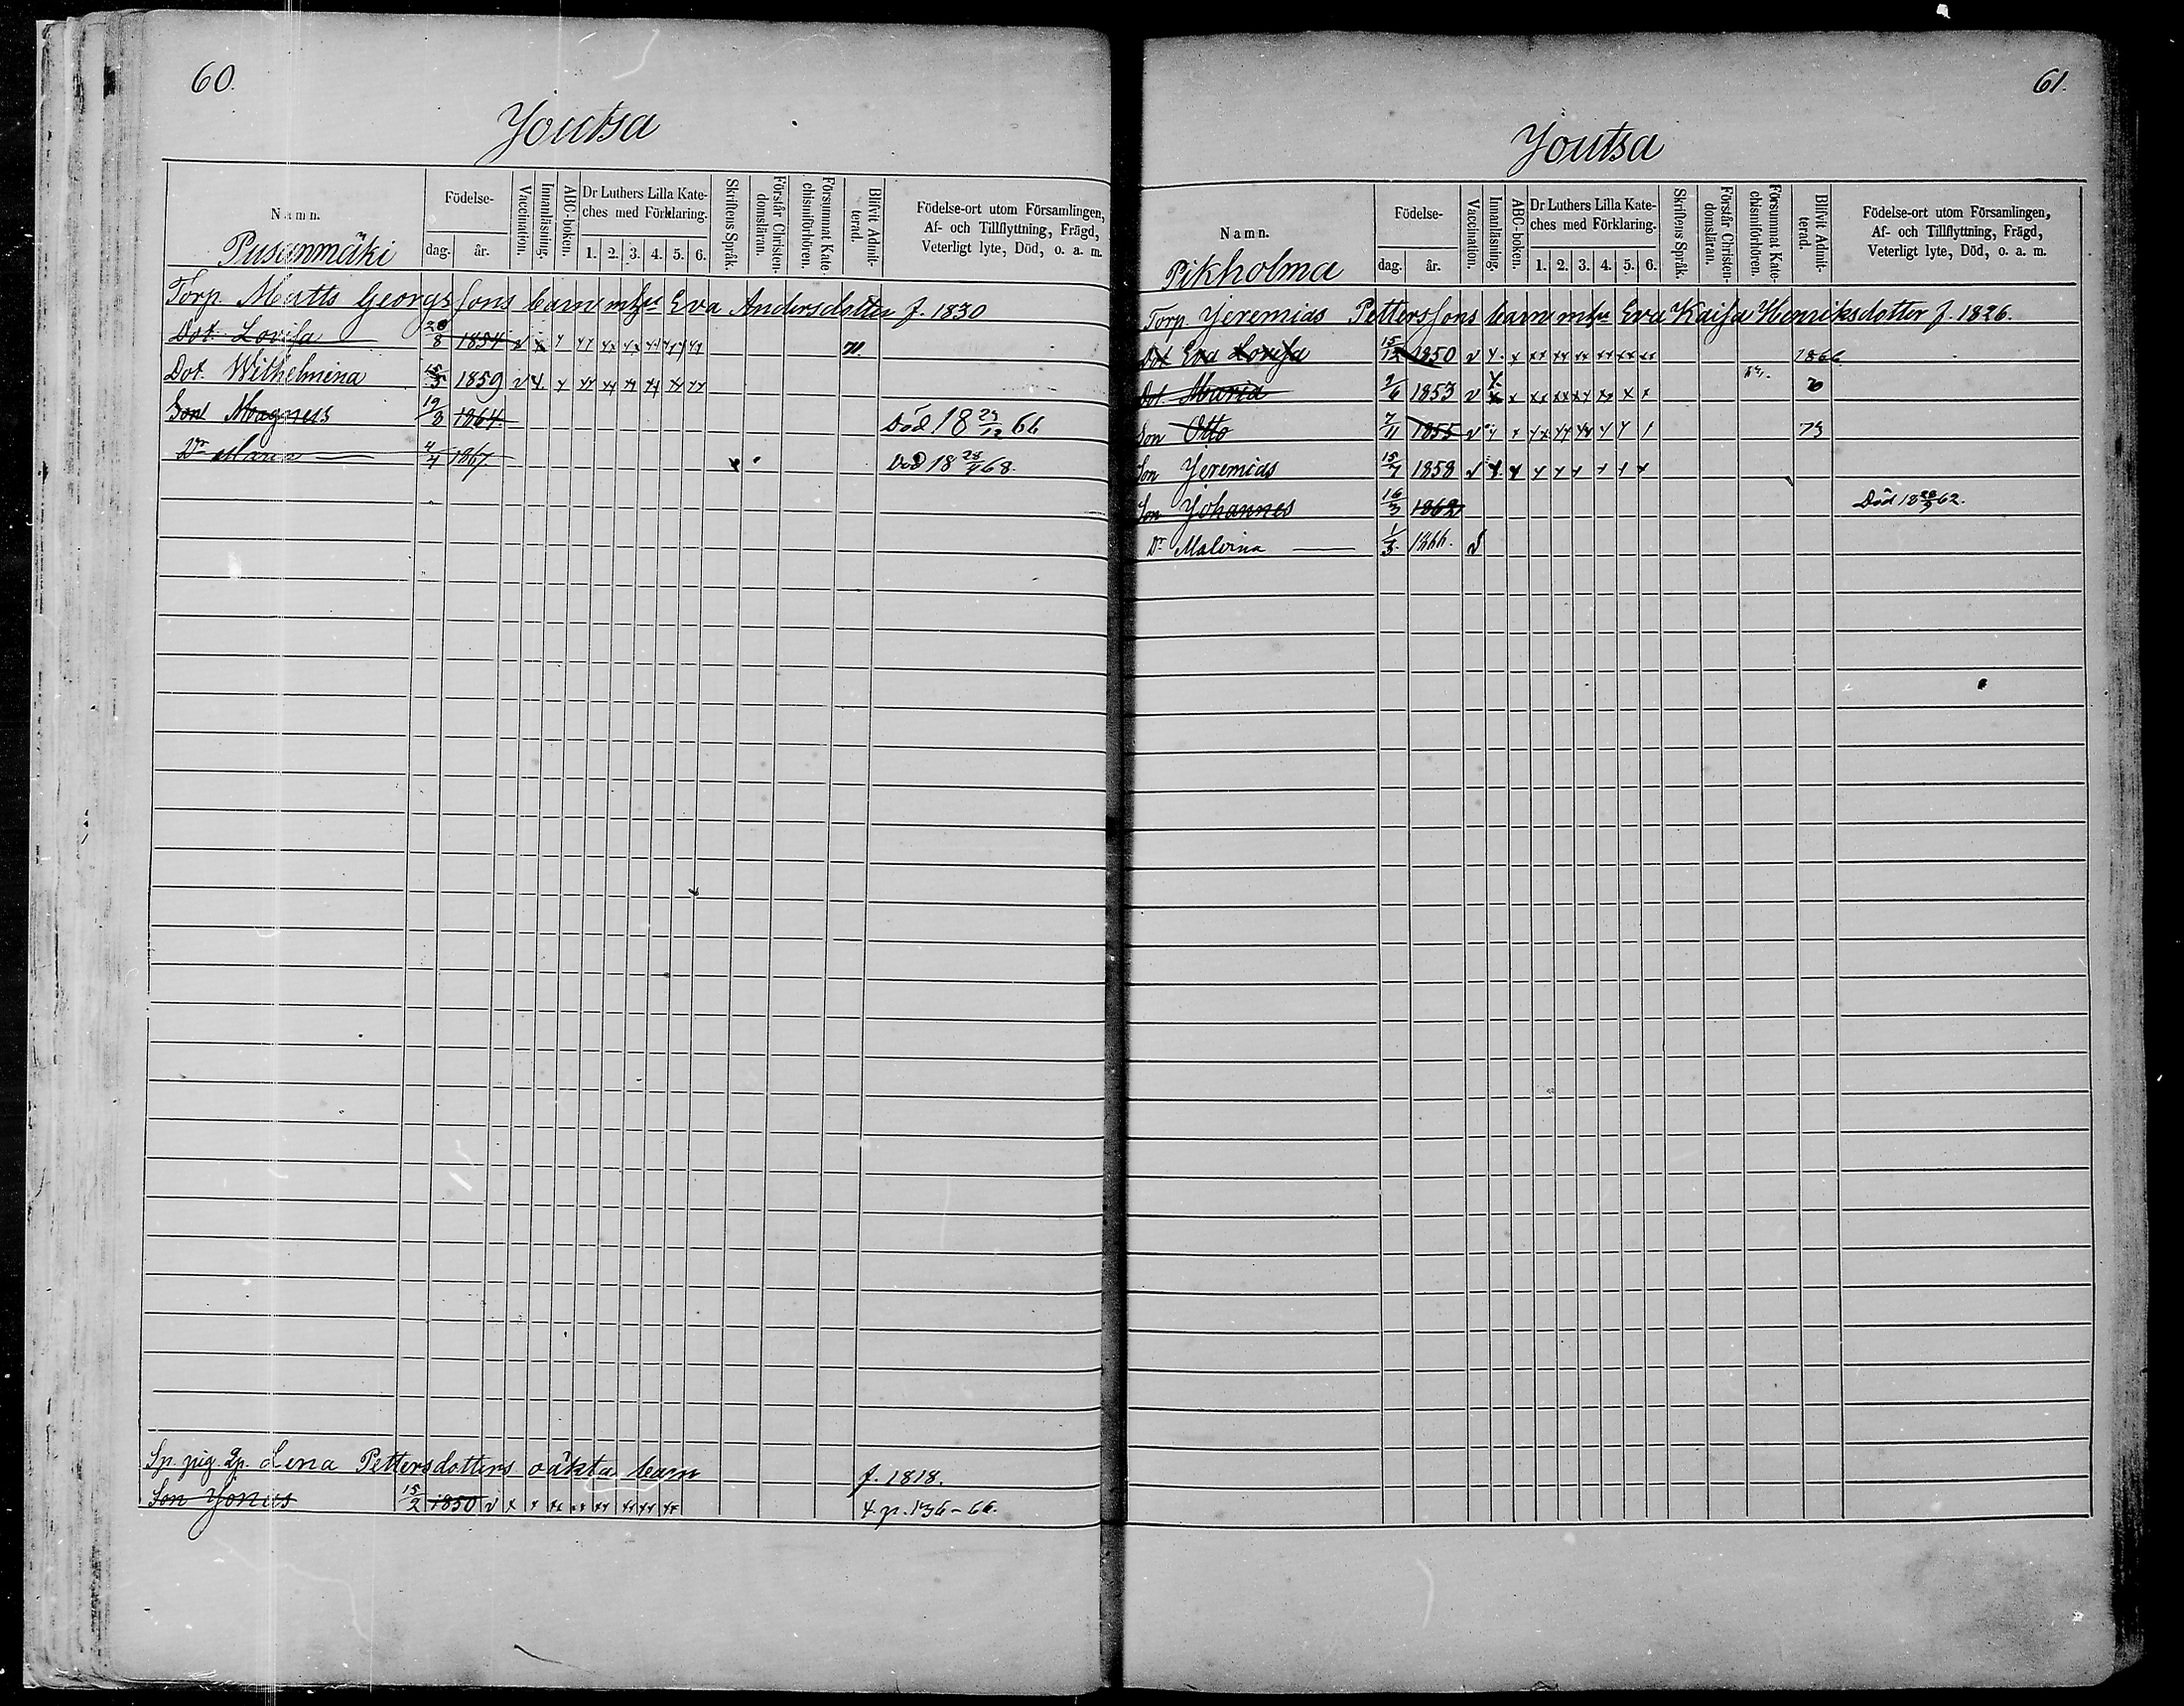 60.
Joutsa
Namn.
Födelse-
dag. år.
Vaccination.
Innanläsning.
ABC-boken.
Dr Luthers Lilla Kate-
ches med Förklaring.
1. 2. 3. 4. 5. 6.
Skriftens Språk.
Förstår Christen-
domsläran.
Försummat Kate-
chismiförhören.
Blifvit Admit-
terad.
Födelse-ort utom Församlingen,
Af- och Tillflyttning, Frägd,
Veterligt lyte, Död, o. a. m.
Pusanmäki
Torp. Matts Georgssons barn m hu Eva Andersdotter f. 1830
Dot. Lovisa 28/8 1854 71
Dot. Wilhelmina 15/5 1859
Son Magnus 19/8 1864 Död 18 23/12 66
Dr Maria 4/4 1867. Död 18 28/4 68.
Sp. pig. Lena Pettersdotters oäkta barn f. 1818.
Son Jonas 15/2 1850 136-66.
61.
Joutsa
Namn.
Födelse-
dag. år.
Vaccination.
Innanläsning.
ABC-boken.
Dr Luthers Lilla Kate-
ches med Förklaring.
1. 2. 3. 4. 5. 6.
Skriftens Språk.
Förstår Christen-
domsläran.
Försummat Kate-
chismiförhören.
Blifvit Admit-
terad.
Födelse-ort utom Församlingen,
Af- och Tillflyttning, Frägd,
Veterligt lyte, Död, o. a. m.
Pikholma
Torp. Jeremias Petterssons barn m hu Eva Kaisa Henriksdotter f. 1826.
Dot Eva Lovisa 15/12 1850 1866
Dot. Maria 2/6 1853
Son Otto 7/11 1855 73
Son Jeremias 15/7 1858
Son Johannes 16/3 1862 Död 18 62.
Dr Malvina 1/3 1866.